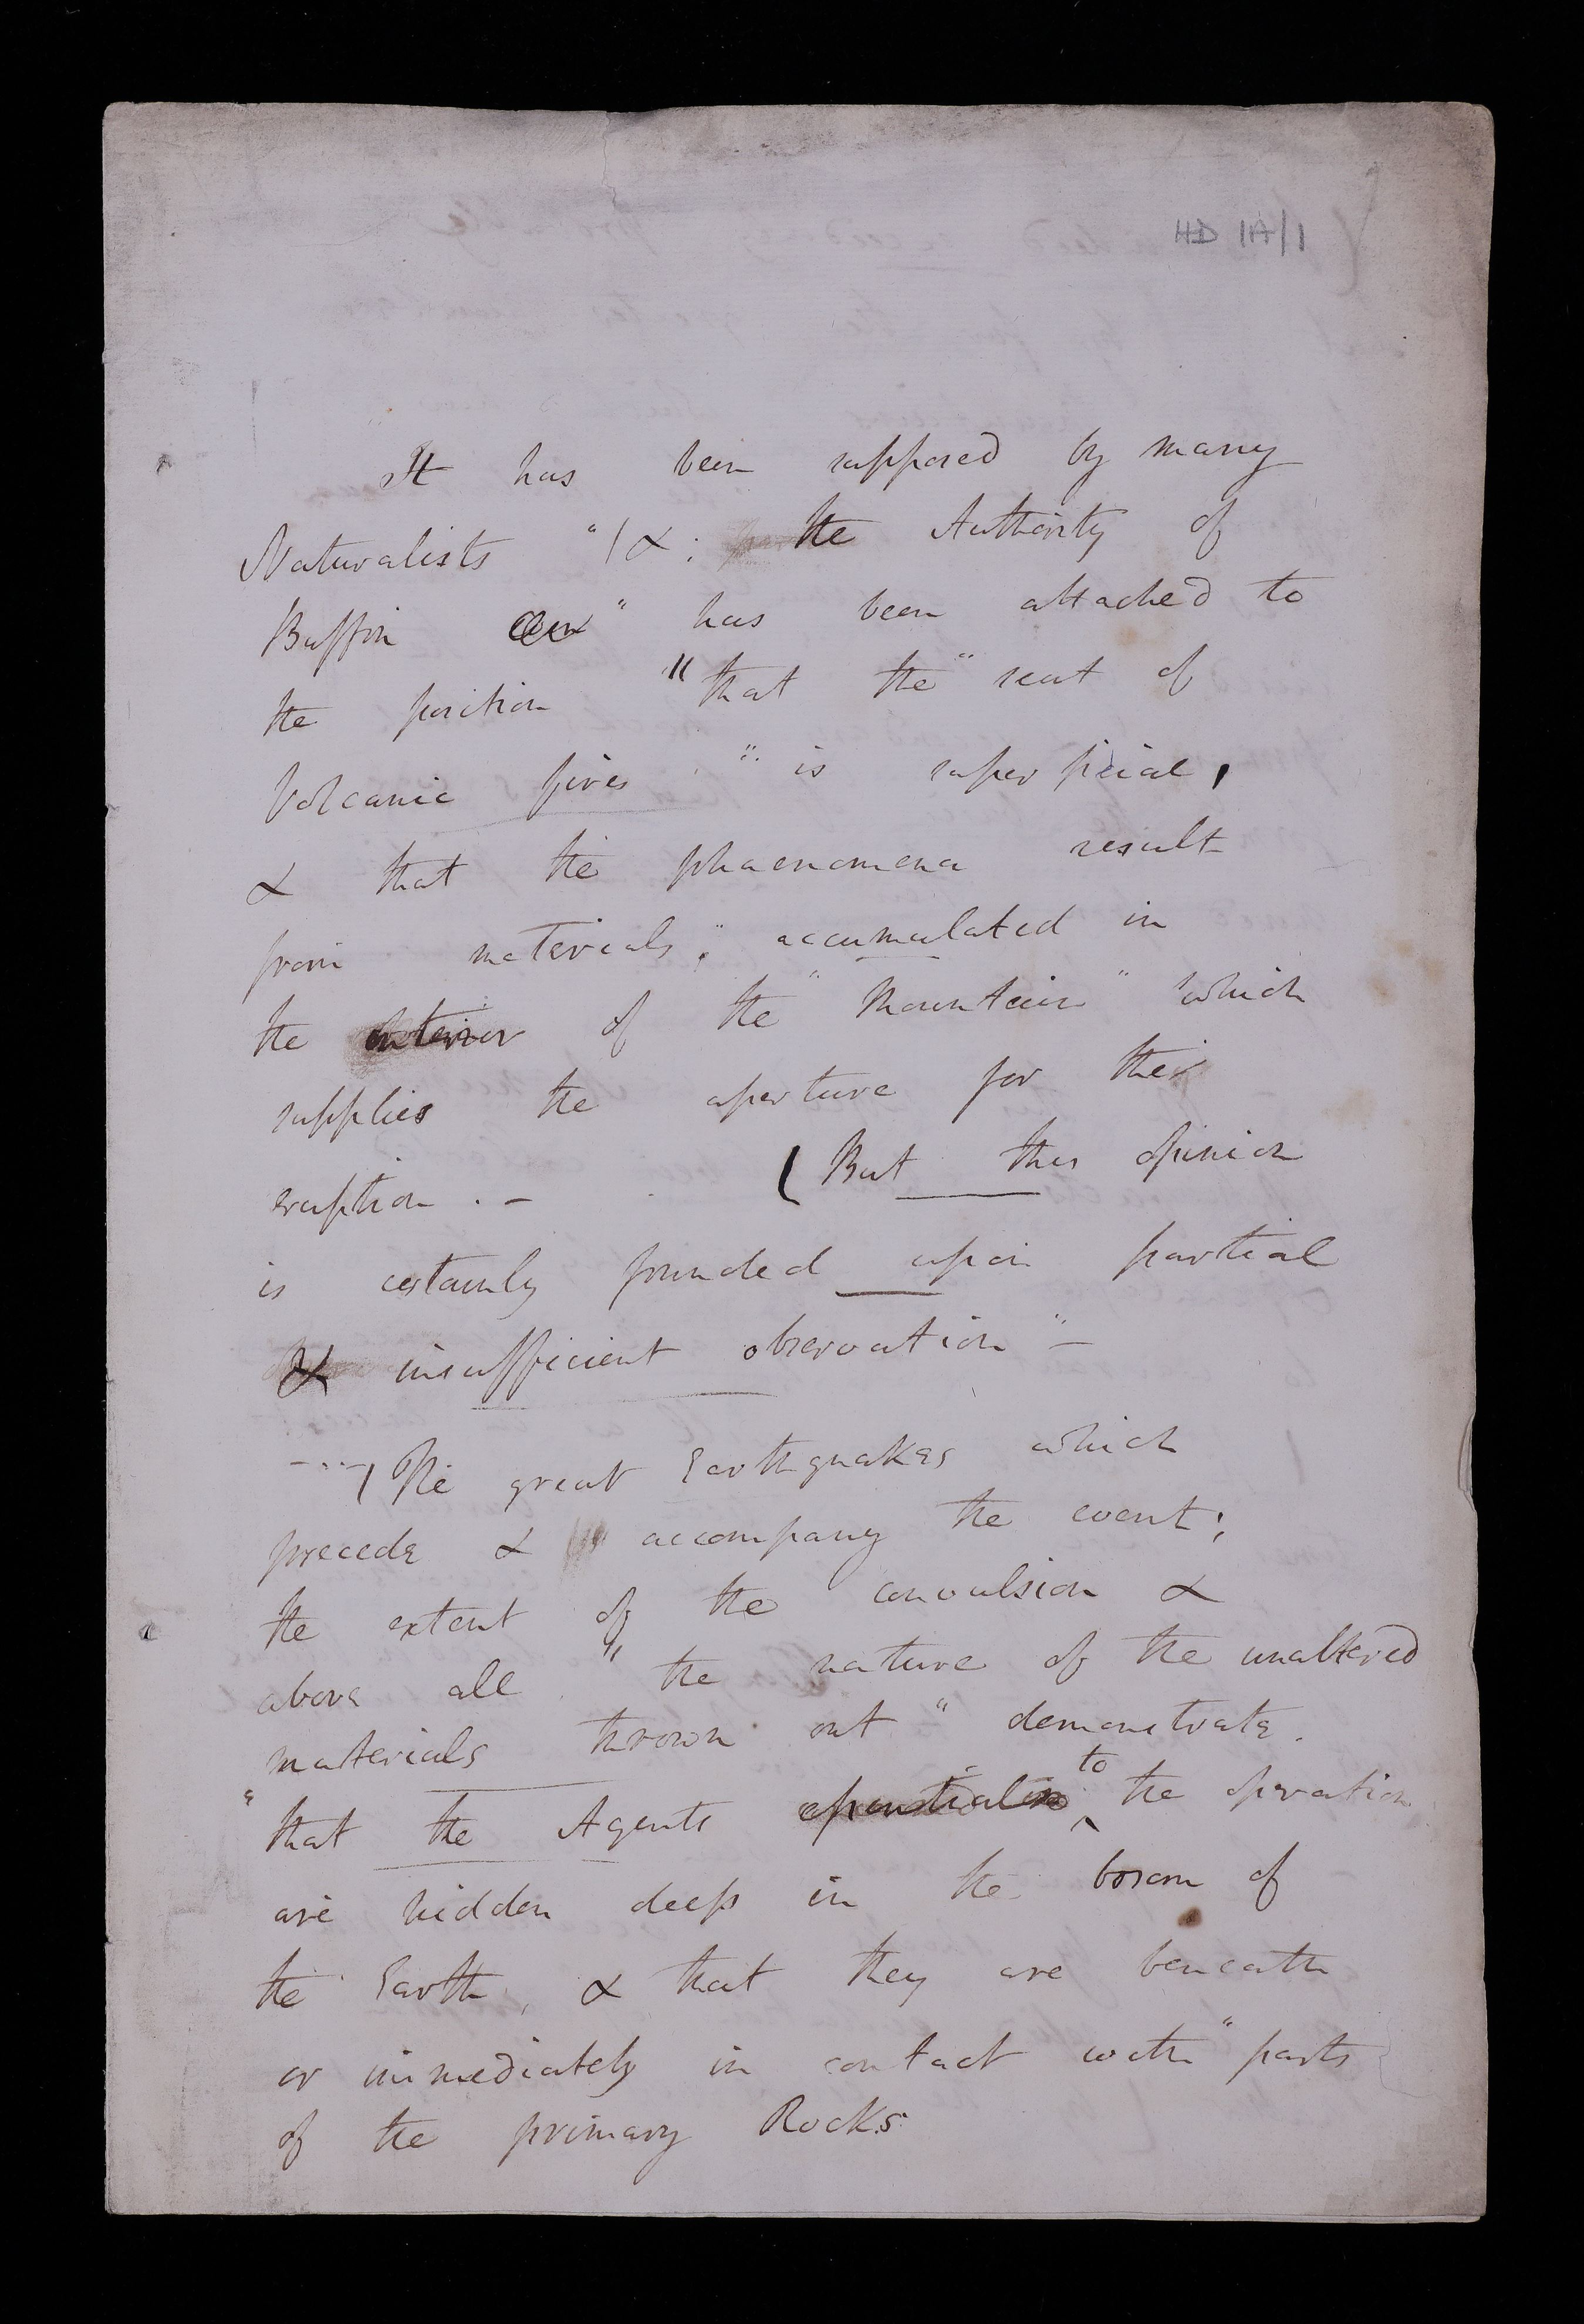 HD 1A/1
It has been supposed by many
Naturalists "(&; the Authority of
Buffon " has been attached to
the position "that the" seat of
Volcanic fires " is superficial,
& that the phaenomena result
from materials, accumulated in
the interior of the "Mountain" which
supplies the aperture for their
eruption. — (But this opinion
is certainly founded upon partial
& insufficient observation" —
(The great Earthquakes which
precede & accompany the event;
the extent of the convulsion &
above all "the nature of the unaltered
materials thrown out" demonstrate.
to
"that the Agents essential the operation
are hidden deep in the bosom of
the Earth, & that they are beneath
or immediately in contact with "parts
of the primary Rocks